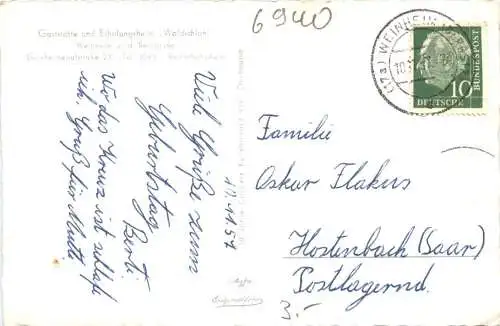 Gaststätte und Erholungsheim "Waldschloß"
Weinheim a. d. Bergstraße
6940
(17a) WEINHEIM
10
DEUTSCHE
BUNDESPOST
Viele Grüße zum
Geburtstag
Berti
10.11.57
Wo das Kreuz ist schlafe
ich. Gruß für Mutti
Familie
Oskar Flakus
Hostenbach (Saar)
Postlagernd.
3.-
Agfa